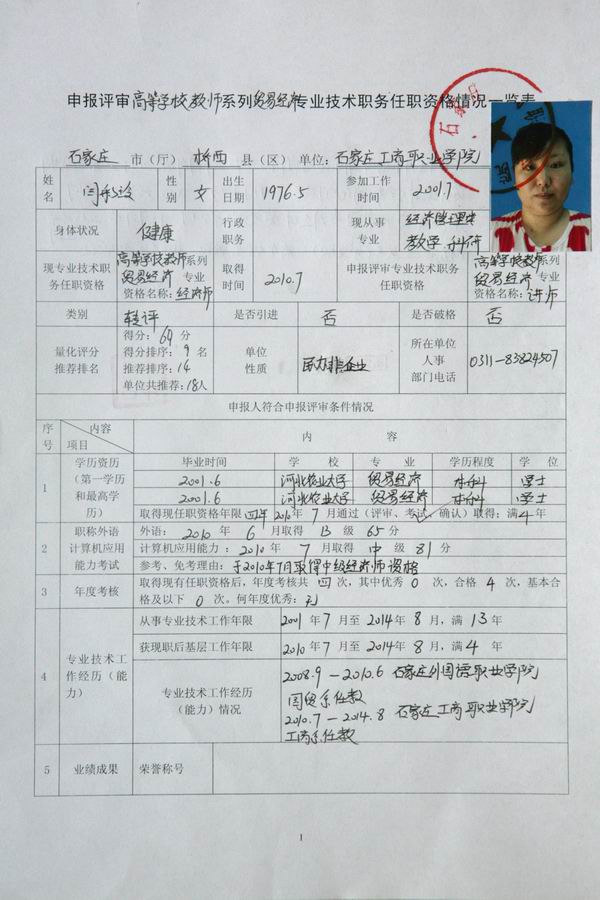 申报评审高等学校教师系列贸易经济专业技术职务任职资格情况一览表
石家庄 市（厅） 桥西 县（区） 单位：石家庄工商职业学院
姓名 闫 性别 女 出生日期 1976.5 参加工作时间 2001.7
身体状况 健康 行政职务 现从事专业 经济管理 教学、科研
现专业技术职务任职资格 高等学校教师系列 贸易经济 专业 资格名称：经济师 取得时间 2010.7 申报评审专业技术职务任职资格 高等学校教师系列 贸易经济 专业 资格名称：讲师
类别 转评 是否引进 否 是否破格 否
量化评分推荐排名 得分：69 分 得分排序：9 名 推荐排序：14 单位共推荐：18人 单位性质 民办非企业 所在单位人事部门电话 0311-83824507
申报人符合申报评审条件情况
序号 内容 项目 内 容
1 学历资历（第一学历和最高学历） 毕业时间 学 校 专 业 学历程度 学 位
2001.6 河北农业大学 贸易经济 本科 学士
2001.6 河北农业大学 贸易经济 本科 学士
取得现任职资格年限 四年 2010年 7 月通过（评审、考试、确认）取得：满4 年
2 职称外语计算机应用能力考试 外语：2010 年 6 月取得 B 级 65 分
计算机应用能力：2010年 7 月取得 中 级 81 分
参考、免考理由：于2010年7月取得中级经济师资格
3 年度考核 取得现有任职资格后，年度考核共 四 次，其中优秀 0 次，合格 4 次，基本合格及以下 0 次。何年度优秀：无
4 专业技术工作经历（能力） 从事专业技术工作年限 2001 年 7 月至 2014年 8 月，满 13 年
获现职后基层工作年限 2010 年 7 月至 2014年 8 月，满 4 年
专业技术工作经历（能力）情况 2008.9 —2010.6 石家庄外国语职业学院
国贸系任教
2010.7 —2014.8 石家庄工商职业学院
工商系任教
5 业绩成果 荣誉称号
1